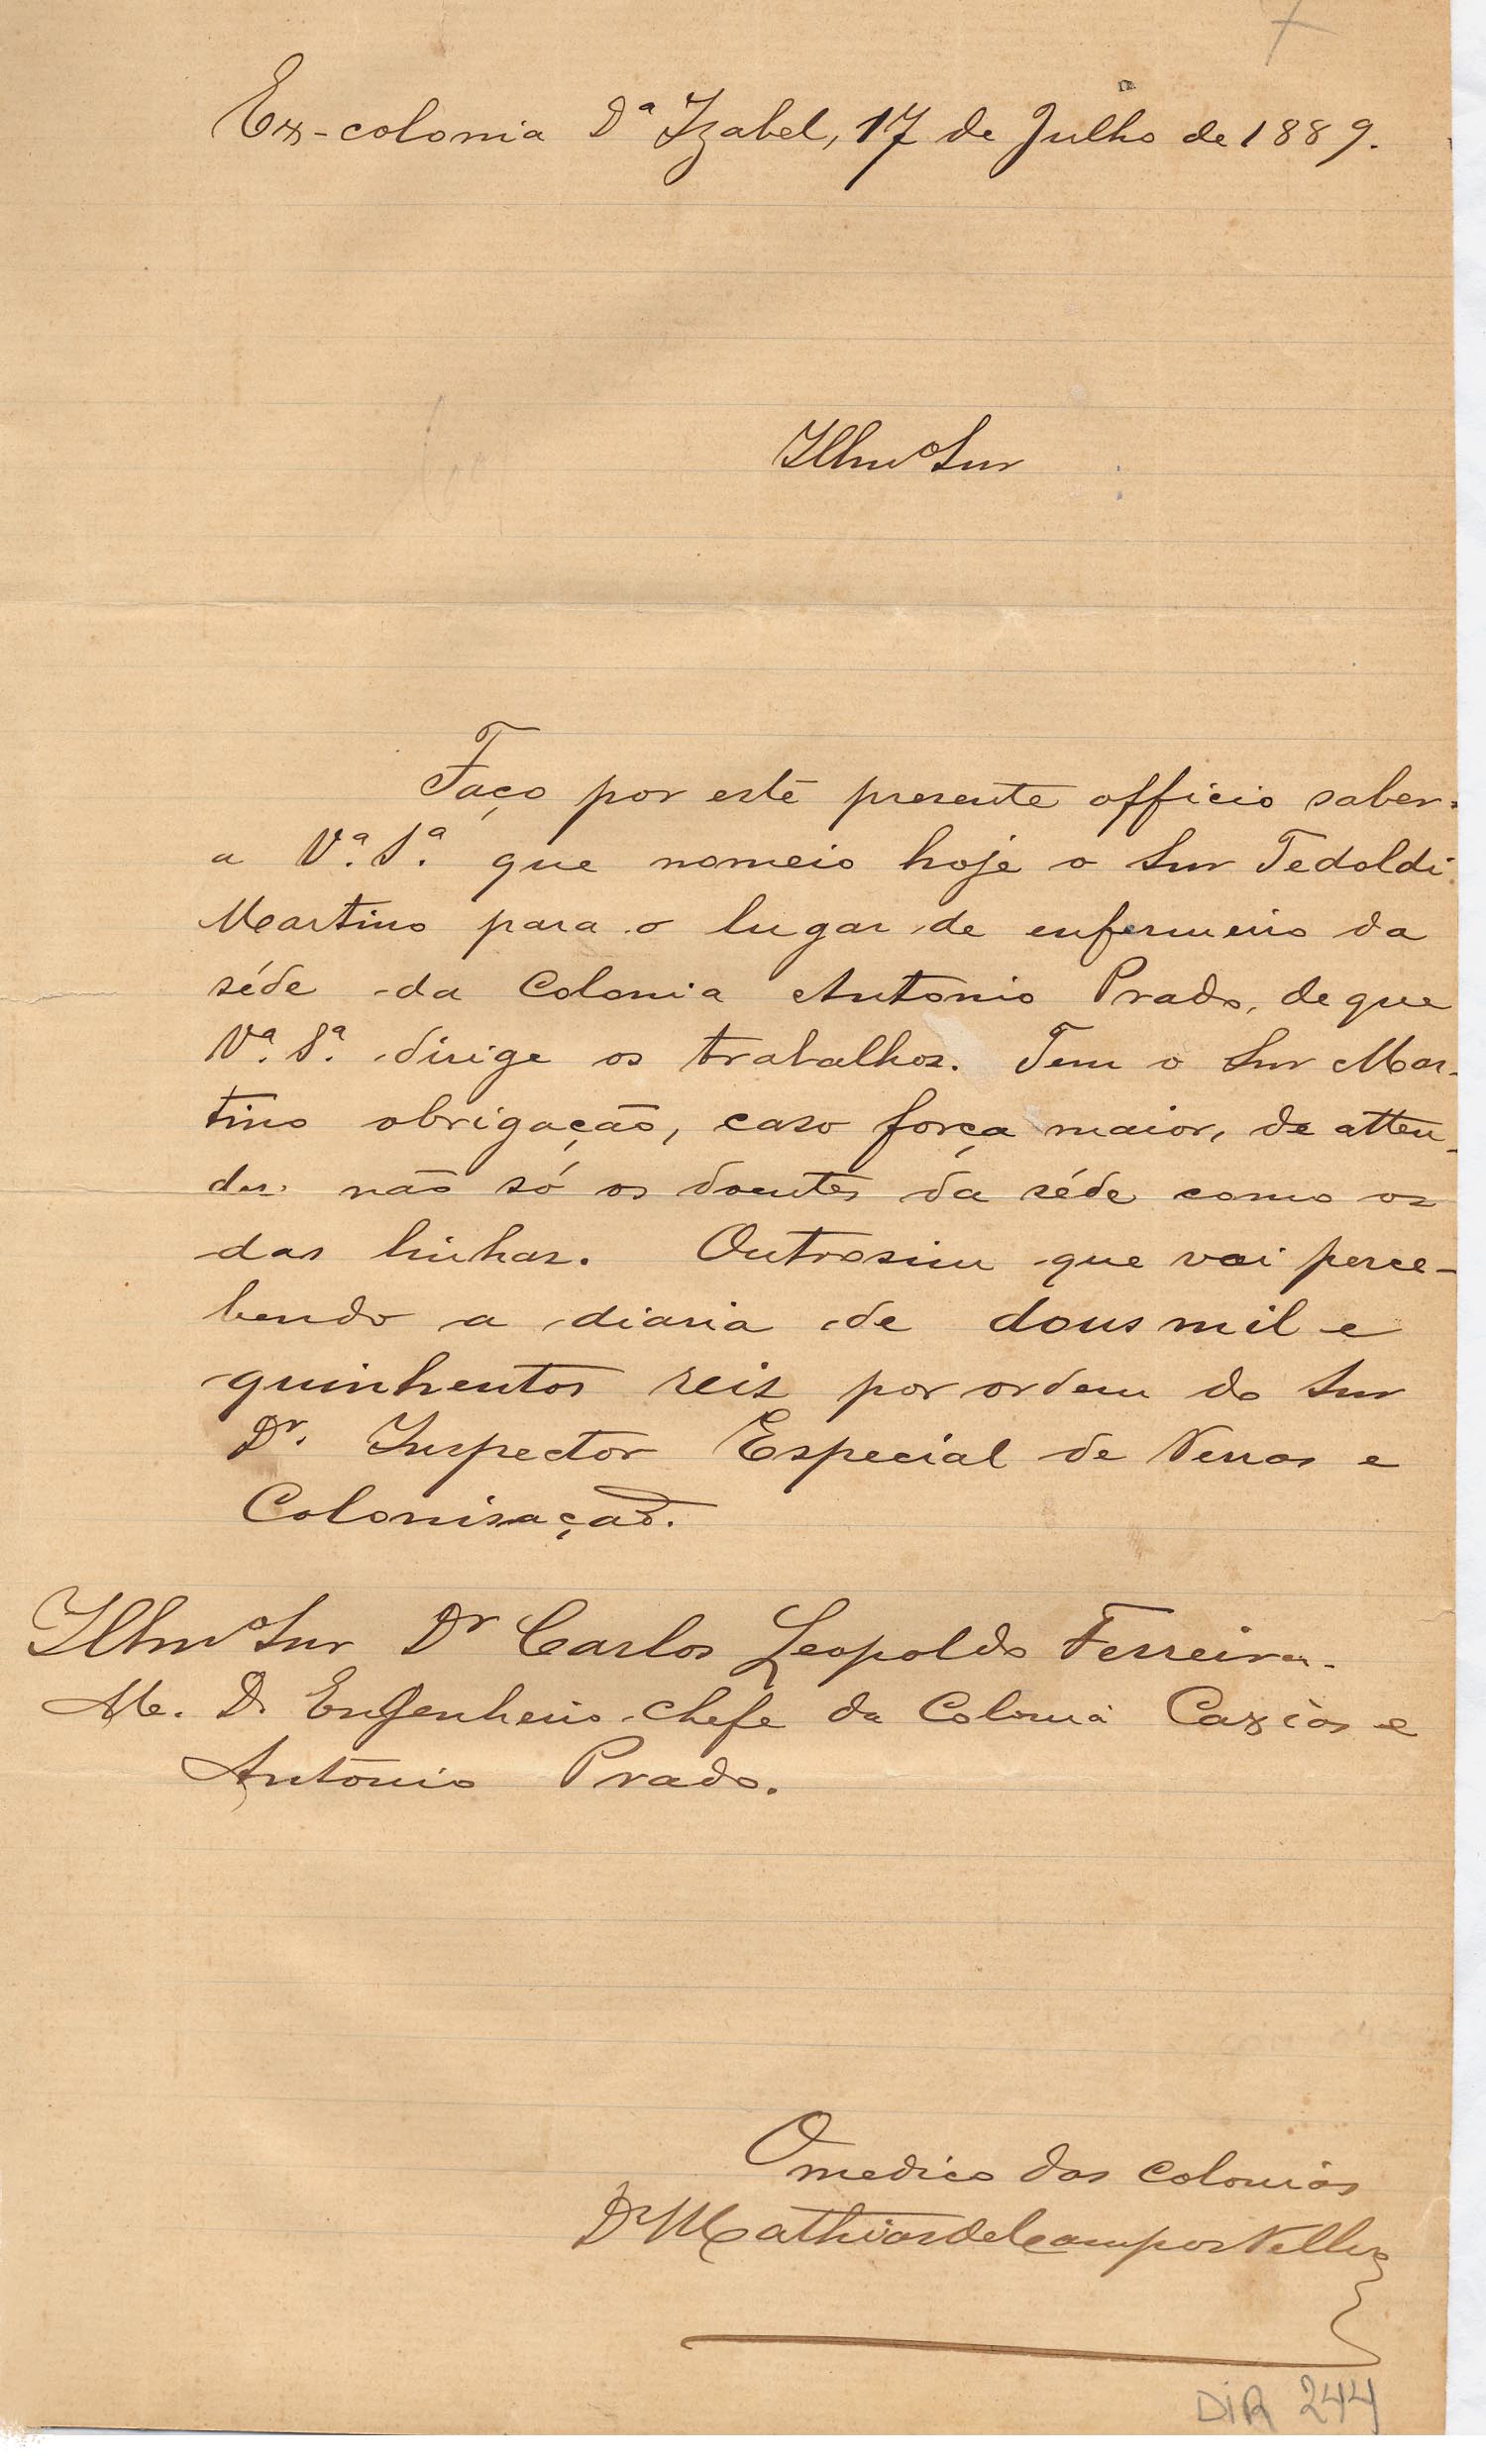 Ex-colonia Dª Izabel, 17 de Julho de 1889.
Illmº Snr
Faço por este presente officio saber
a Vª. Sª. que nomeio hoje o Snr Tedoldi
Martino para o lugar de enfermeiro da
séde da Colonia Antonio Prado, de que
Vª. Sª. dirige os trabalhos. Tem o Snr Mar-
tino obrigação, caso força maior, de atten-
der não só os doentes da séde como os
das linhas. Outrosim que vai perce-
bendo a diaria de dous mil e
quinhentos reis por ordem do Snr
Dr. Inspector Especial de Terras e
Colonisação.
Illmº Snr Dr Carlos Leopoldo Ferreira.
M. D. Engenheiro chefe da Colonia Caxias e
Antonio Prado.
O medico das colonias
Dr Mathias de Campos Vellho
DiR 244